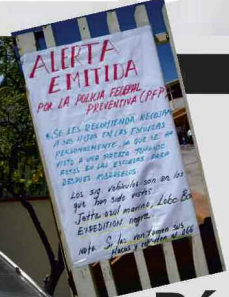 ALERTA
EMITIDA
POR LA POLICIA FEDERAL
PREVENTIVA (PFP)
SE LES RECOMIENDA RECOGER
A SUS HIJOS EN LAS ESCUELAS
PERSONALMENTE YA QUE SE HA
VISTO A UNA PAREJA TOMANDO
FOTOS EN LAS ESCUELAS PARA
DESPUES ROBARSELOS
LOS sig vehículos son en los
que han sido vistos.
Jetta azul marino, Lobo
EXPEDITION negra
Nota. Si los ven tomen sus
placas y al 066